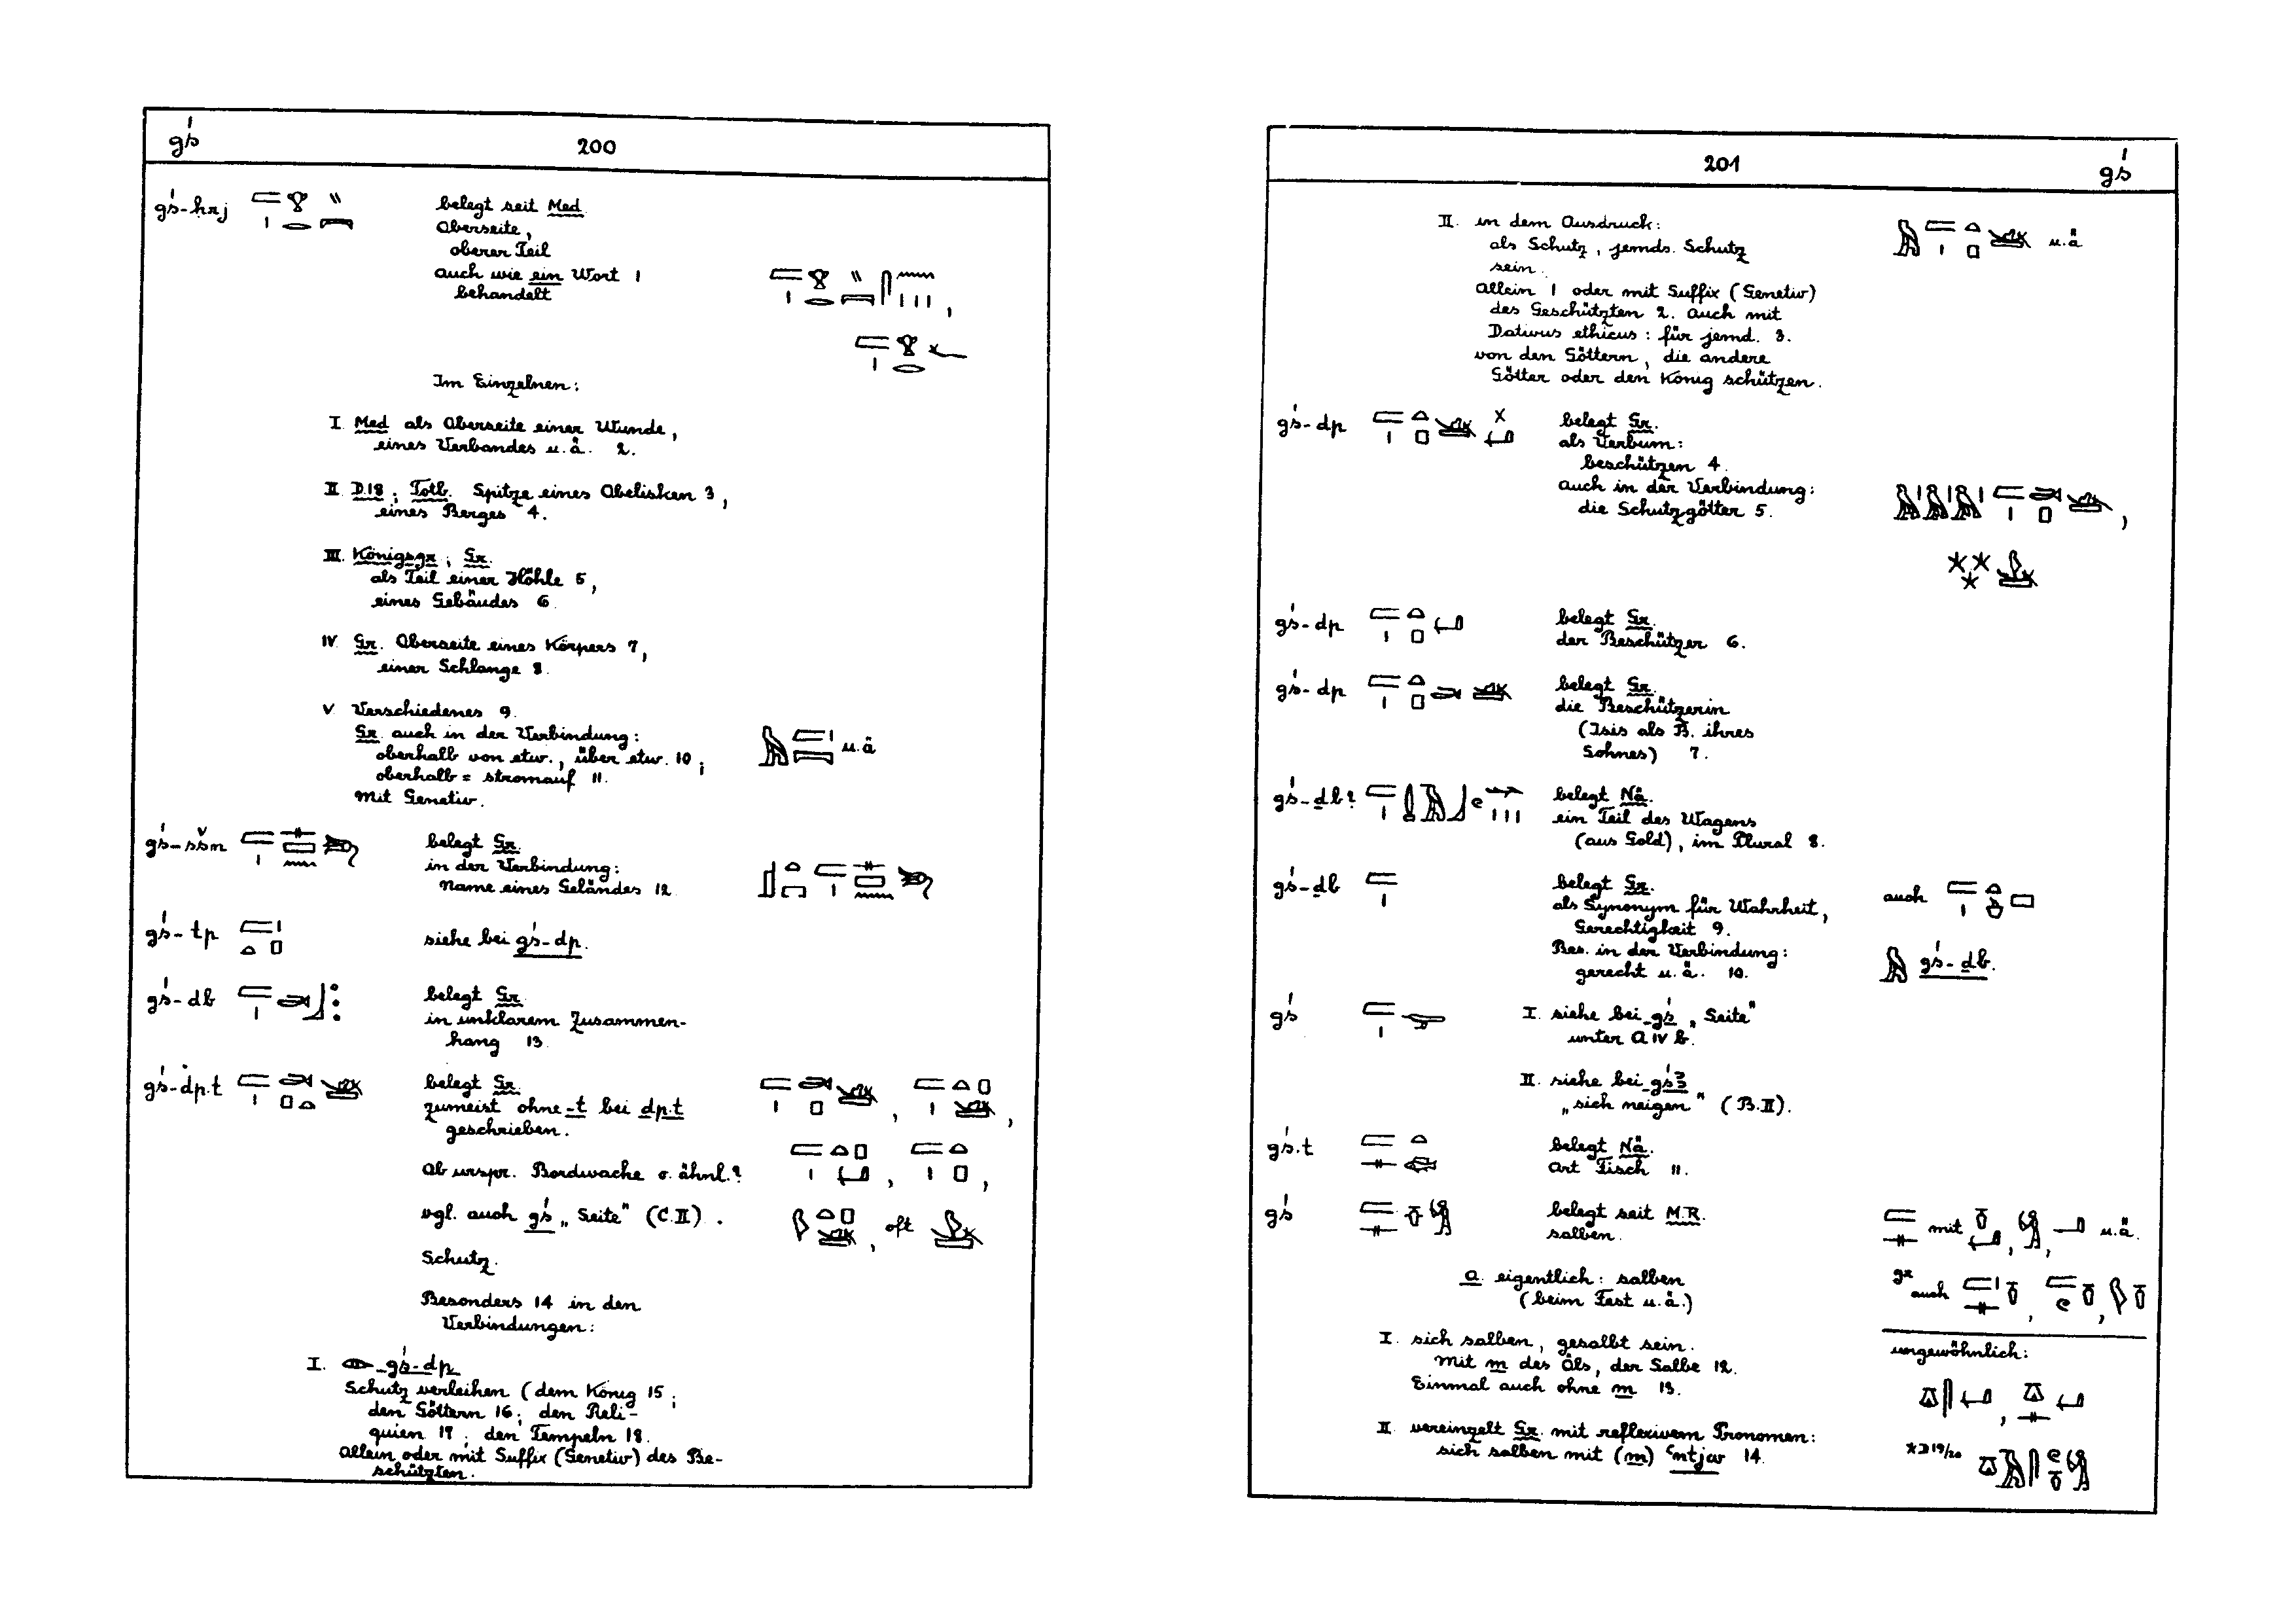 gś 200
gś-ḥrj belegt seit Med.
Oberseite,
oberer Teil
auch wie ein Wort 1
behandelt
Im Einzelnen:
I. Med als Oberseite einer Wunde,
eines Verbandes u.ä. 2.
II. D.18; Totb. Spitze eines Obelisken 3,
eines Berges 4.
III. Königsgr.; Gr.
als Teil einer Höhle 5,
eines Gebäudes 6.
IV. Gr. Oberseite eines Körpers 7,
einer Schlange 8.
V. Verschiedenes 9.
Gr. auch in der Verbindung:
oberhalb von etw., über etw. 10; u.ä
oberhalb = stromauf 11.
Mit Genetiv.
gś-sšn belegt Gr.
in der Verbindung:
Name eines Geländes 12
gś-tp siehe bei gś-dp.
gś-db belegt Gr.
in unklarem Zusammen-
hang 13.
gś-dp.t belegt Gr.
zumeist ohne -t bei dp.t
geschrieben.
Ob urspr. Bordwache o. ähnl.?
vgl. auch gś „Seite" (C.II). oft
Schutz.
Besonders 14 in den
Verbindungen:
I. -gś-dp
Schutz verleihen (dem König 15;
den Göttern 16; den Reli-
quien 17; den Tempeln 18.
Allein oder mit Suffix (Genetiv) des Be-
schützten.
201 gś
II. in dem Ausdruck: u.ä
als Schutz, jemds. Schutz
sein.
Allein 1 oder mit Suffix (Genetiv)
des Geschützten 2. Auch mit
Dativus ethicus: für jemd. 3.
von den Göttern, die andere
Götter oder den König schützen.
gś-dp belegt Gr.
als Verbum:
beschützen 4.
auch in der Verbindung:
die Schutzgötter 5.
gś-dp belegt Gr.
der Beschützer 6.
gś-dp belegt Gr.
die Beschützerin
(Isis als B. ihres
Sohnes) 7.
gś-ḏb? belegt Nä.
ein Teil des Wagens
(aus Gold), im Plural 8.
gś-ḏb belegt Gr. auch
als Synonym für Wahrheit,
Gerechtigkeit 9.
Bes. in der Verbindung: gś-ḏb.
gerecht u.ä. 10.
gś I. siehe bei gś „Seite"
unter A IV b.
II. siehe bei gśꜣ
„sich neigen" (B.II).
gś.t belegt Nä.
Art Fisch 11.
gś belegt seit M.R. mit u.ä.
salben.
a. eigentlich: salben gr auch
(beim Fest u.ä.)
I. sich salben, gesalbt sein. ungewöhnlich:
Mit m des Öls, der Salbe 12.
Einmal auch ohne m 13.
II. vereinzelt Gr. mit reflexivem Pronomen:
sich salben mit (m) ꜥntjw 14. *D19/20